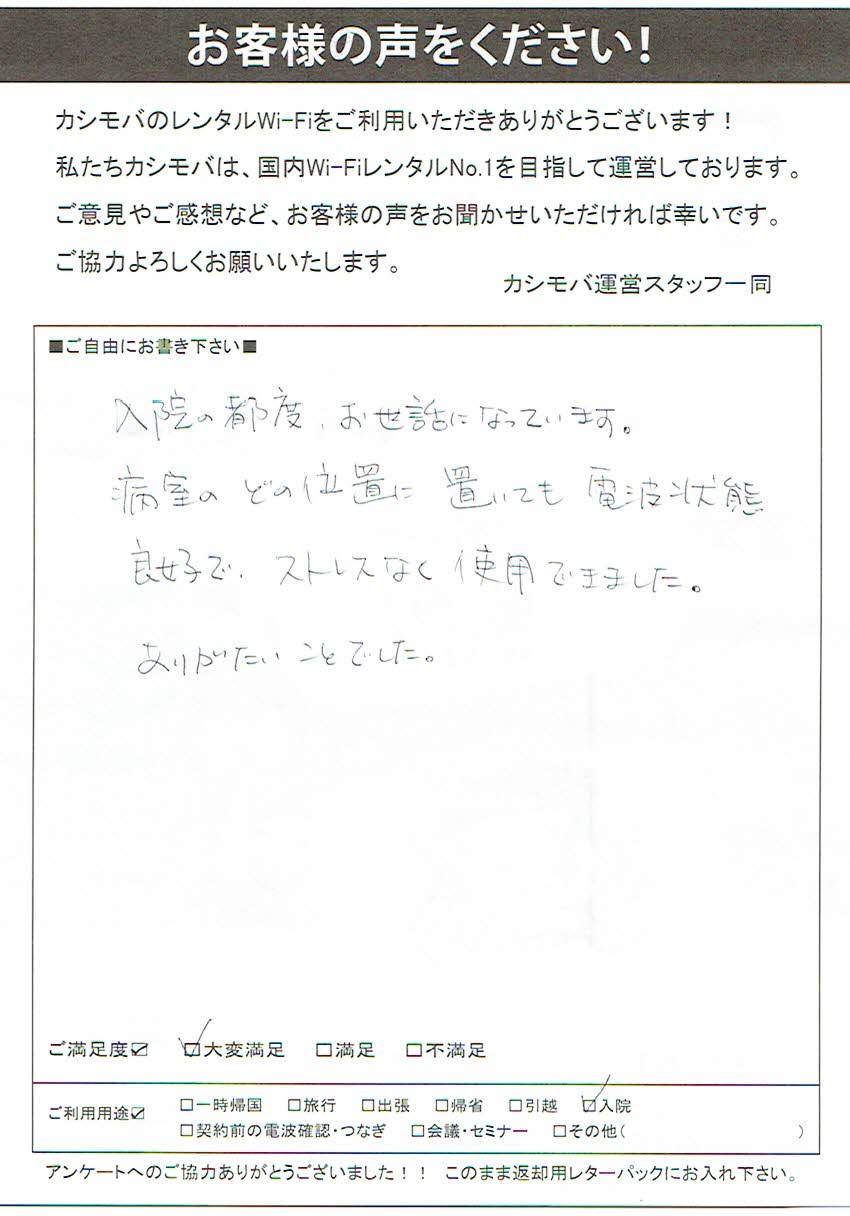 お客様の声をください!
カシモバのレンタルWi-Fiをご利用いただきありがとうございます!
私たちカシモバは、国内Wi-FiレンタルNo.1を目指して運営しております。
ご意見やご感想など、お客様の声をお聞かせいただければ幸いです。
ご協力よろしくお願いいたします。
カシモバ運営スタッフ一同
■ご自由にお書き下さい■
入院の都度、お世話になっています。
病室の どの位置に 置いても 電波状態
良好で、ストレスなく 使用できました。
ありがたい ことでした。
ご満足度☑ ☑大変満足 □満足 □不満足
ご利用用途☑ □一時帰国 □旅行 □出張 □帰省 □引越 ☑入院
□契約前の電波確認・つなぎ □会議・セミナー □その他( )
アンケートへのご協力ありがとうございました!! このまま返却用レターパックにお入れ下さい。